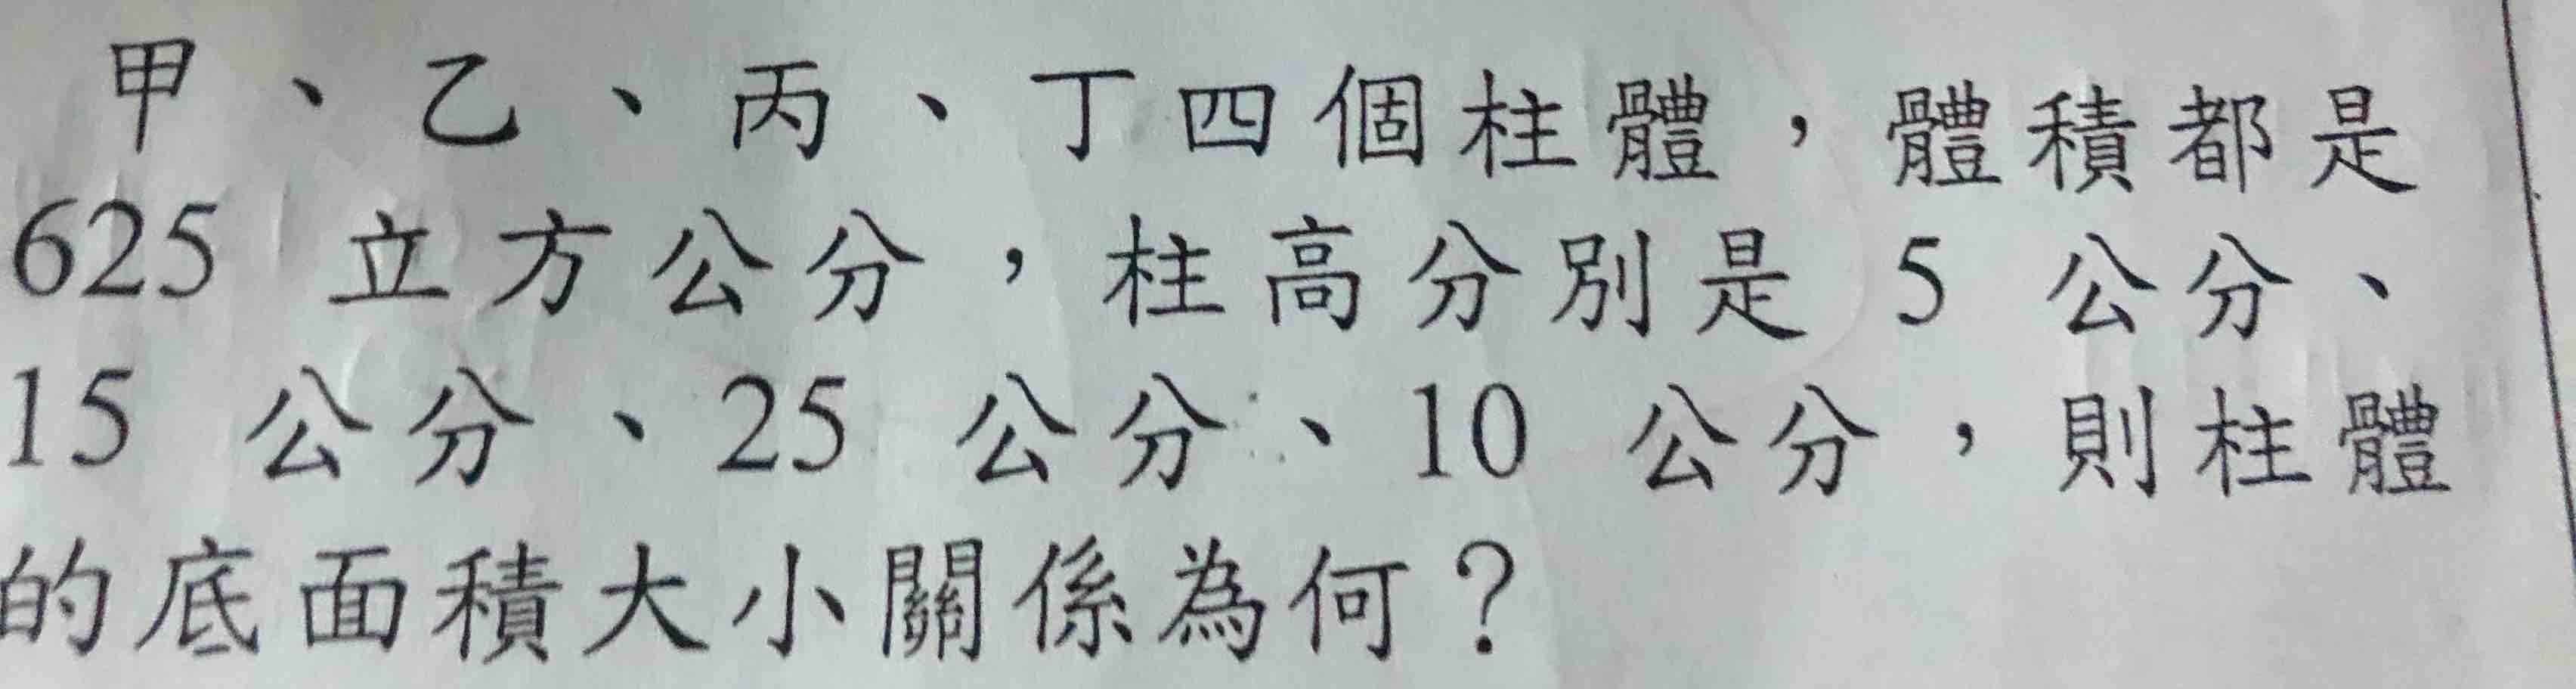 甲、乙、丙、丁四個柱體，體積都是
625 立方公分，柱高分別是 5 公分、
15 公分、25 公分、10 公分，則柱體
的底面積大小關係為何？